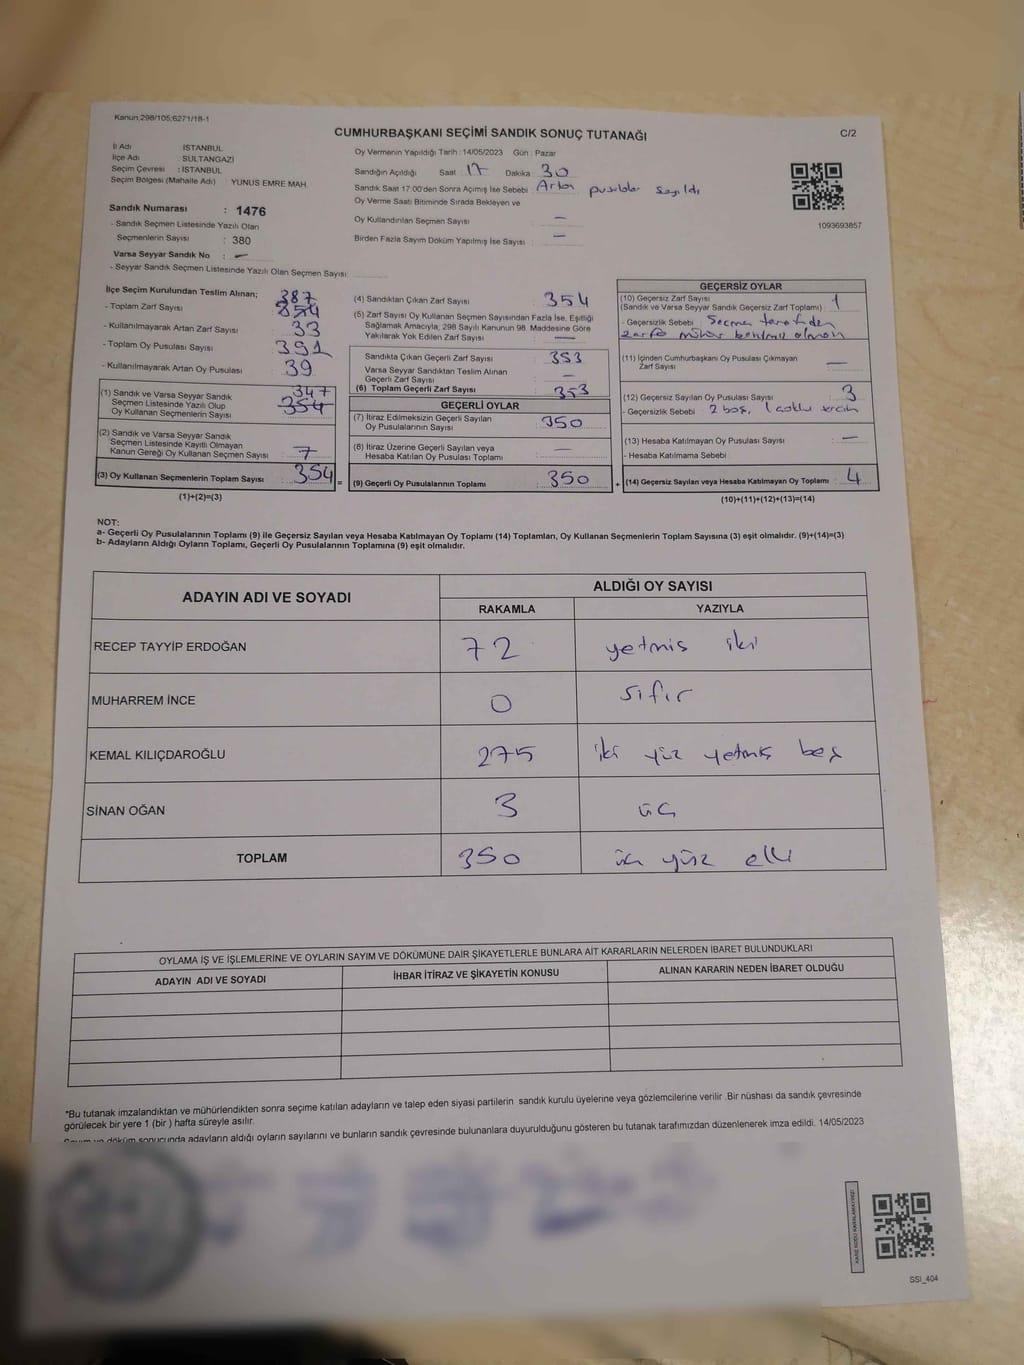 Kanun;298/105;6271/18-1
CUMHURBAŞKANI SEÇİMİ SANDIK SONUÇ TUTANAĞI
C/2
İl Adı : İSTANBUL
İlçe Adı : SULTANGAZİ
Seçim Çevresi : İSTANBUL
Seçim Bölgesi (Mahalle Adı) : YUNUS EMRE MAH.
Sandık Numarası : 1476
- Sandık Seçmen Listesinde Yazılı Olan
Seçmenlerin Sayısı : 380
Varsa Seyyar Sandık No : -
- Seyyar Sandık Seçmen Listesinde Yazılı Olan Seçmen Sayısı:
Oy Vermenin Yapıldığı Tarih : 14/05/2023 Gün : Pazar
Sandığın Açıldığı Saat : 17 Dakika : 30
Sandık Saat 17:00'den Sonra Açımış İse Sebebi : Artan pusulalar sayıldı
Oy Verme Saati Bitiminde Sırada Bekleyen ve
Oy Kullandırılan Seçmen Sayısı : -
Birden Fazla Sayım Döküm Yapılmış İse Sayısı : -
1093693857
İlçe Seçim Kurulundan Teslim Alınan;
- Toplam Zarf Sayısı : 387 354
- Kullanılmayarak Artan Zarf Sayısı : 33
- Toplam Oy Pusulası Sayısı : 391
- Kullanılmayarak Artan Oy Pusulası : 39
(1) Sandık ve Varsa Seyyar Sandık
Seçmen Listesinde Yazılı Olup
Oy Kullanan Seçmenlerin Sayısı : 347 354
(2) Sandık ve Varsa Seyyar Sandık
Seçmen Listesinde Kayıtlı Olmayan
Kanun Gereği Oy Kullanan Seçmen Sayısı : 7
(3) Oy Kullanan Seçmenlerin Toplam Sayısı : 354
(1)+(2)=(3)
(4) Sandıktan Çıkan Zarf Sayısı : 354
(5) Zarf Sayısı Oy Kullanan Seçmen Sayısından Fazla İse, Eşitliği
Sağlamak Amacıyla, 298 Sayılı Kanunun 98. Maddesine Göre
Yakılarak Yok Edilen Zarf Sayısı : -
Sandıkta Çıkan Geçerli Zarf Sayısı : 353
Varsa Seyyar Sandıktan Teslim Alınan
Geçerli Zarf Sayısı : -
(6) Toplam Geçerli Zarf Sayısı : 353
GEÇERLİ OYLAR
(7) İtiraz Edilmeksizin Geçerli Sayılan
Oy Pusulalarının Sayısı : 350
(8) İtiraz Üzerine Geçerli Sayılan veya
Hesaba Katılan Oy Pusulası Toplamı : -
= (9) Geçerli Oy Pusulalarının Toplamı : 350
GEÇERSİZ OYLAR
(10) Geçersiz Zarf Sayısı
(Sandık ve Varsa Seyyar Sandık Geçersiz Zarf Toplamı) : 1
- Geçersizlik Sebebi : Seçmen tarafından
zarfa mühür olması
(11) İçinden Cumhurbaşkanı Oy Pusulası Çıkmayan
Zarf Sayısı : -
(12) Geçersiz Sayılan Oy Pusulası Sayısı : 3
- Geçersizlik Sebebi : 2 boş, 1
(13) Hesaba Katılmayan Oy Pusulası Sayısı : -
- Hesaba Katılmama Sebebi :
+ (14) Geçersiz Sayılan veya Hesaba Katılmayan Oy Toplamı : 4
(10)+(11)+(12)+(13)=(14)
NOT:
a- Geçerli Oy Pusulalarının Toplamı (9) ile Geçersiz Sayılan veya Hesaba Katılmayan Oy Toplamı (14) Toplamları, Oy Kullanan Seçmenlerin Toplam Sayısına (3) eşit olmalıdır. (9)+(14)=(3)
b- Adayların Aldığı Oyların Toplamı, Geçerli Oy Pusulalarının Toplamına (9) eşit olmalıdır.
ADAYIN ADI VE SOYADI
ALDIĞI OY SAYISI
RAKAMLA YAZIYLA
RECEP TAYYİP ERDOĞAN 72 yetmiş iki
MUHARREM İNCE 0 sıfır
KEMAL KILIÇDAROĞLU 275 iki yüz yetmiş beş
SİNAN OĞAN 3 üç
TOPLAM 350 üç yüz elli
OYLAMA İŞ VE İŞLEMLERİNE VE OYLARIN SAYIM VE DÖKÜMÜNE DAİR ŞİKAYETLERLE BUNLARA AİT KARARLARIN NELERDEN İBARET BULUNDUKLARI
ADAYIN ADI VE SOYADI İHBAR İTİRAZ VE ŞİKAYETİN KONUSU ALINAN KARARIN NEDEN İBARET OLDUĞU
*Bu tutanak imzalandıktan ve mühürlendikten sonra seçime katılan adayların ve talep eden siyasi partilerin sandık kurulu üyelerine veya gözlemcilerine verilir .Bir nüshası da sandık çevresinde
görülecek bir yere 1 (bir ) hafta süreyle asılır.
Sayım ve döküm sonucunda adayların aldığı oyların sayılarını ve bunların sandık çevresinde bulunanlara duyurulduğunu gösteren bu tutanak tarafımızdan düzenlenerek imza edildi. 14/05/2023
KARE KODU KARALAMAYINIZ!
SSI_404